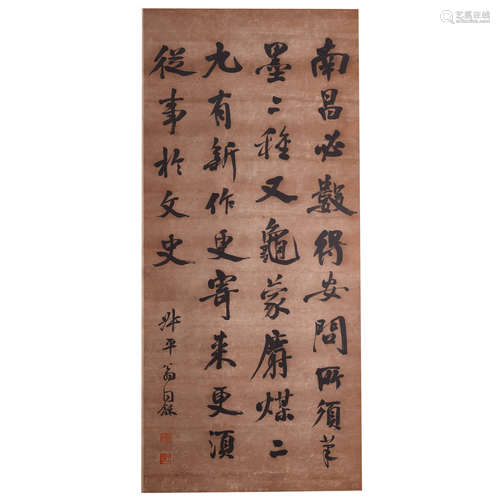 南昌必數得安問所須筆
墨二種又龜蒙麝煤二
九有新作更寄來更須
從事於文史
叔平翁同龢